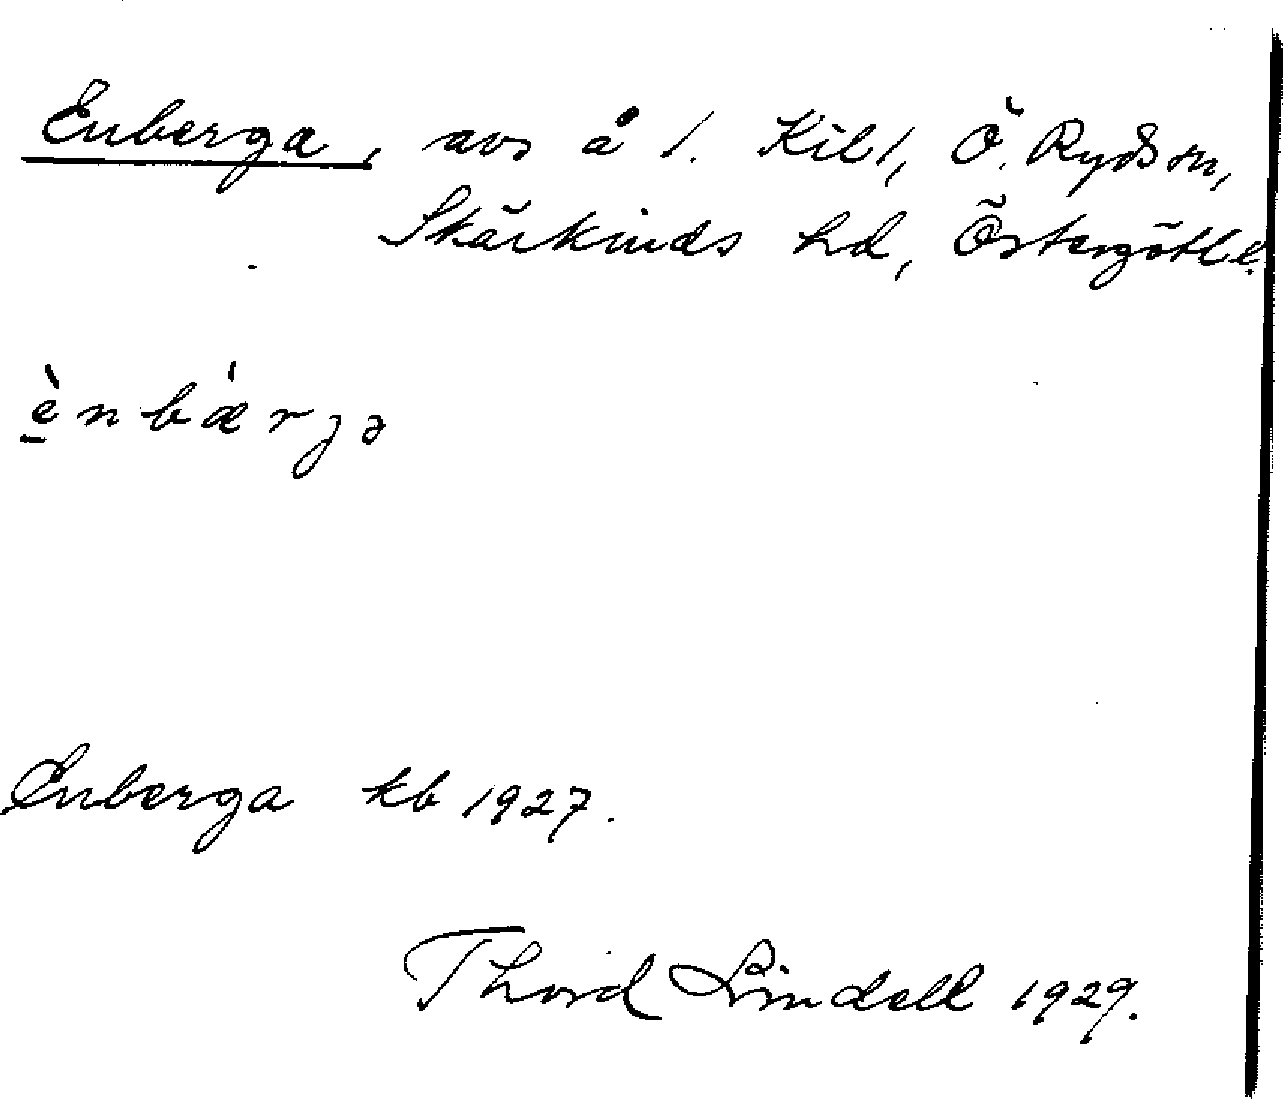 Enberga, avs å 1. Kil 1, Ö. Ryds sn,
Skärkinds hd, Östergötl. l.
ènbǽrjə
Enberga kb 1927.
Thord Lindell 1929.